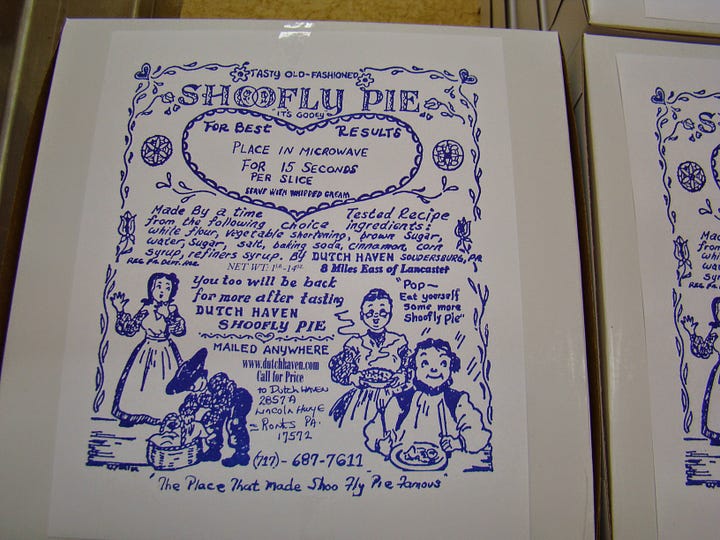 TASTY OLD-FASHIONED
SHOOFLY PIE
IT'S GOOEY
FOR BEST RESULTS
PLACE IN MICROWAVE
FOR 15 SECONDS
PER SLICE
SERVE WITH WHIPPED CREAM
Made By a time Tested Recipe
from the following choice ingredients:
white flour, vegetable shortening, brown sugar,
water, sugar, salt, baking soda, cinnamon, corn
syrup, refiners syrup. By DUTCH HAVEN SOUDERSBURG, PA
REG. PA. DEPT. AGR.
NET WT: 1 14
8 Miles East of Lancaster
You too will be back
for more after tasting
DUTCH HAVEN
SHOOFLY PIE
"Pop—
Eat yourself
some more
Shoofly pie"
MAILED ANYWHERE
www.dutchhaven.com
Call for Price
to Dutch HAVEN
2857A
Lincoln Hwy E
Ronks PA.
17572
(717)-687-7611
"The Place That Made Shoo Fly Pie Famous"